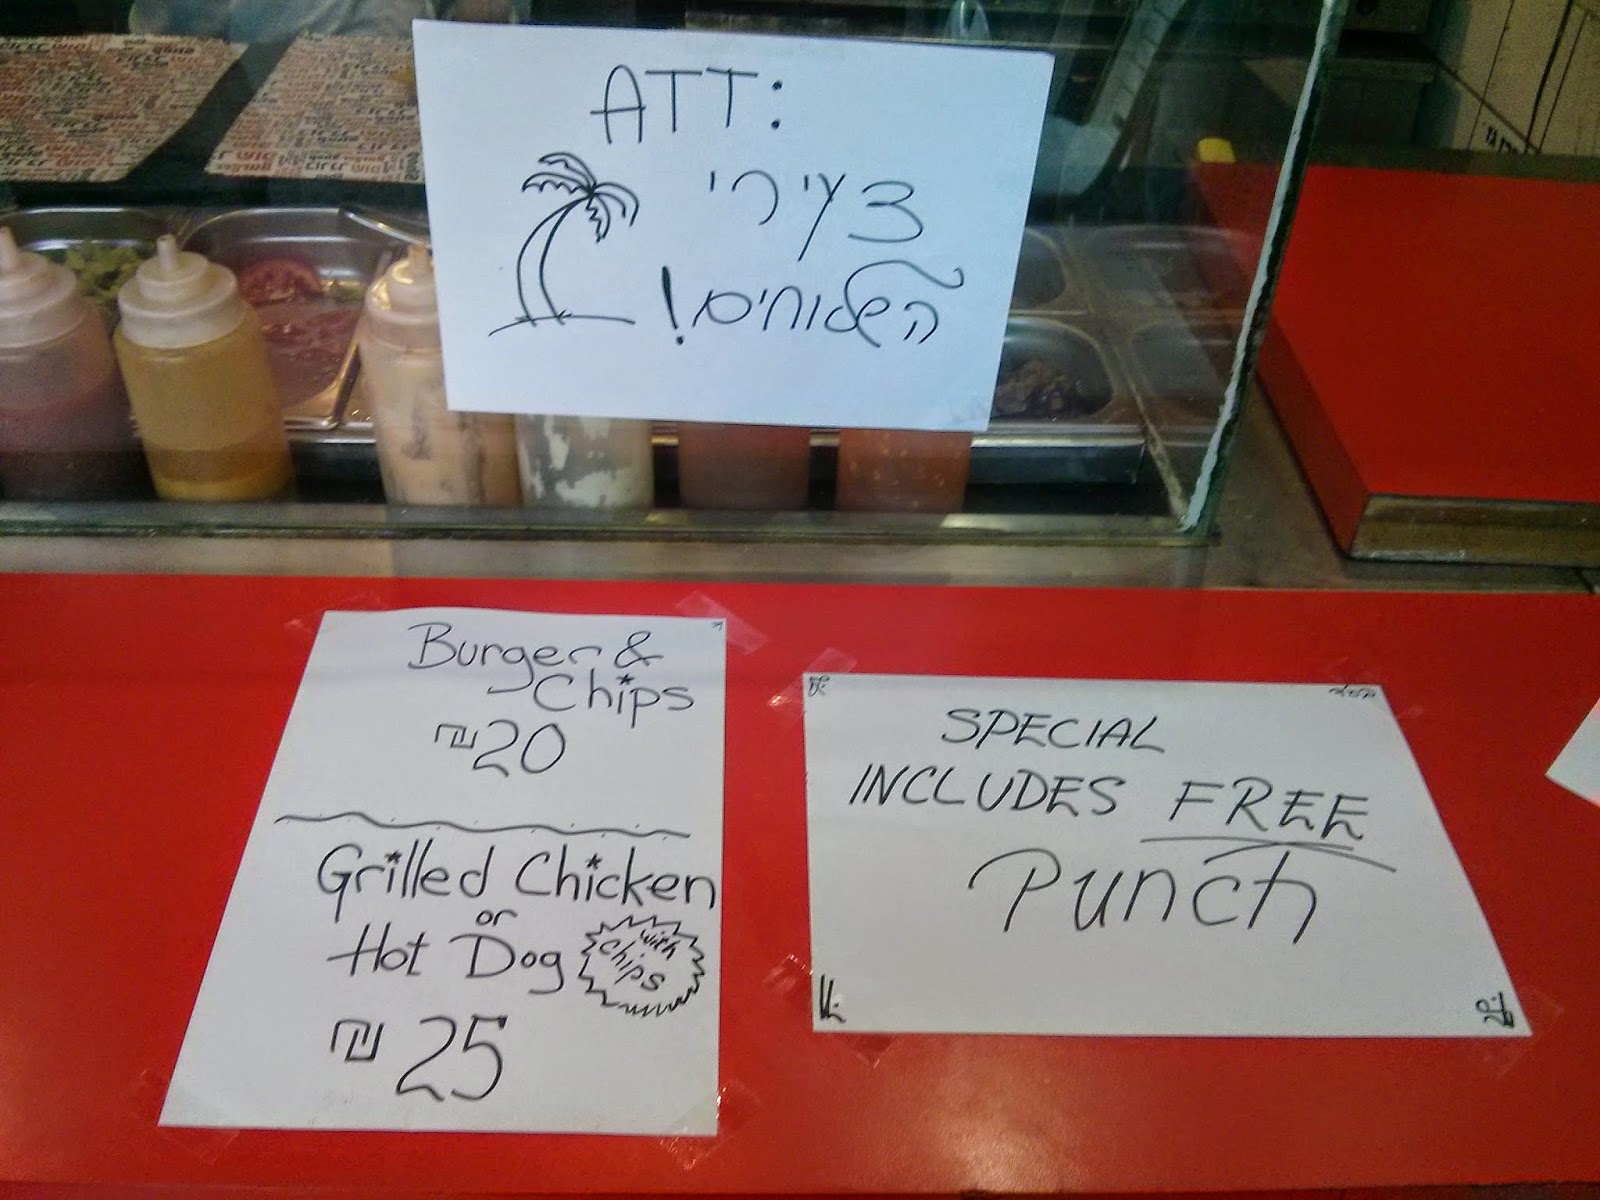 ATT:
צעירי
השלוחים!
Burger &
Chips
₪20
Grilled Chicken
or
Hot Dog
with
chips
₪ 25
SPECIAL
INCLUDES FREE
Punch